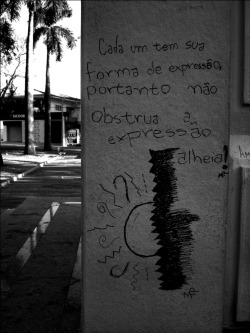 Cada um tem sua
forma de expressão,
portanto não
obstrua a
expressão
alheia!